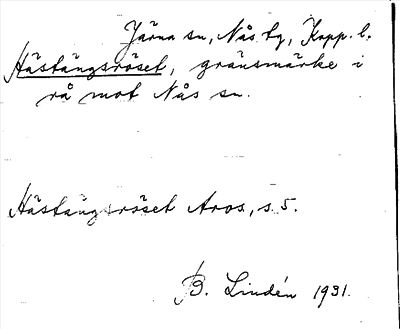 Järna sn, Nås tg, Kopp. l.
Hästängsröset, gränsmärke i
rå mot Nås sn.
Hästängsröset Aros, s. 5.
B. Lindén 1931.